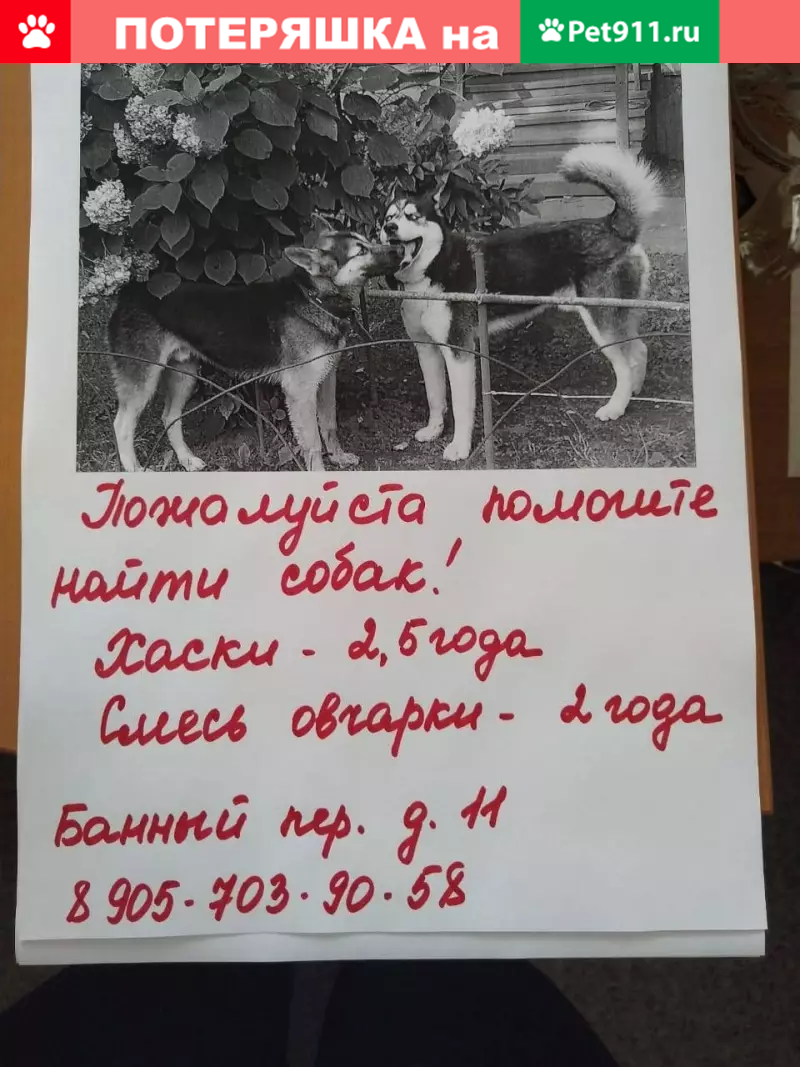 ПОТЕРЯШКА на Pet911.ru
Пожалуйста помогите
найти собак!
Хаски - 2,5 года
Смесь овчарки - 2 года
Банный пер. д. 11
8 905-703-90-58